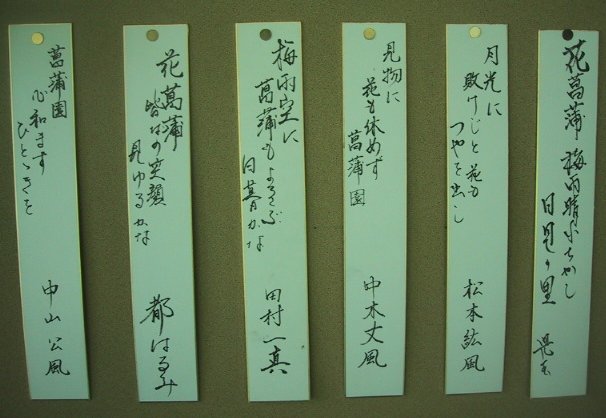 花菖蒲 梅雨晴
日見の里
月光に
敗けじと花も
つやを出し
松本紘風
見物に
花も休めず
菖蒲園
中木丈風
梅雨空に
菖蒲もよろこぶ
日暮かな
田村一真
花菖蒲
皆はの笑顔
見ゆるかな
都はるみ
菖蒲園
心和ます
ひとときを
中山公風